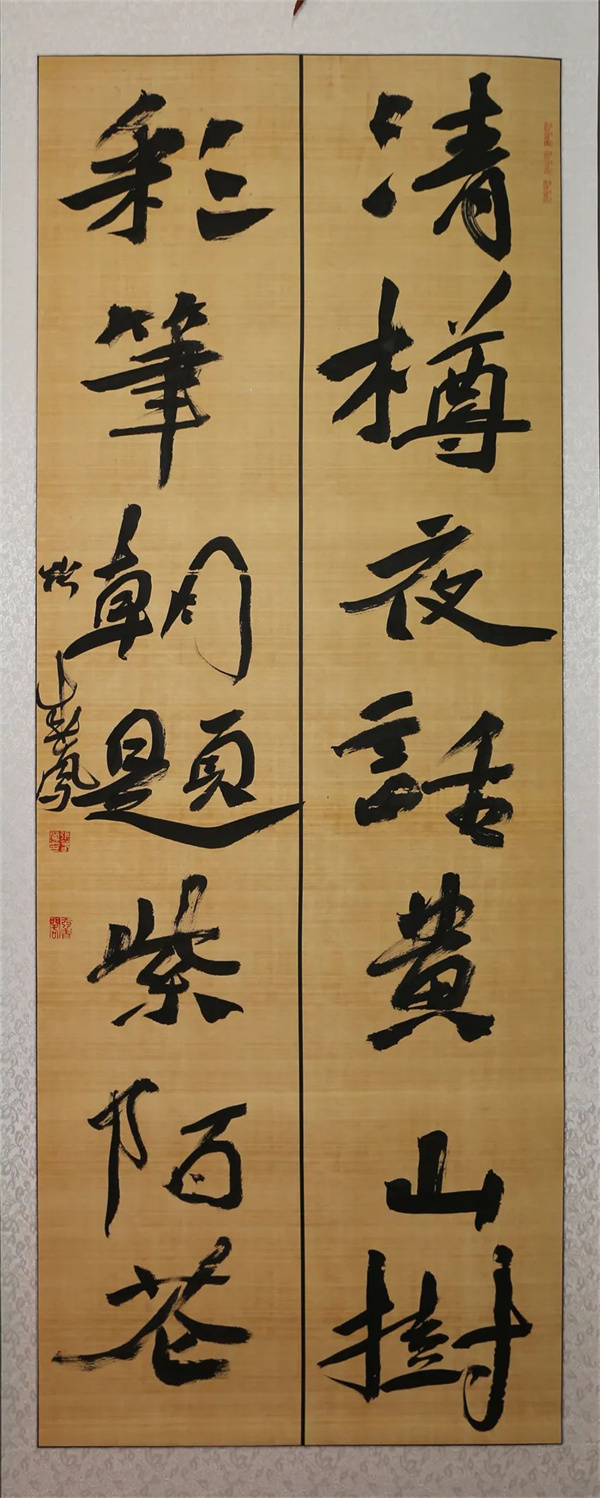 清樽夜話黄山樹
彩筆朝題紫陌花